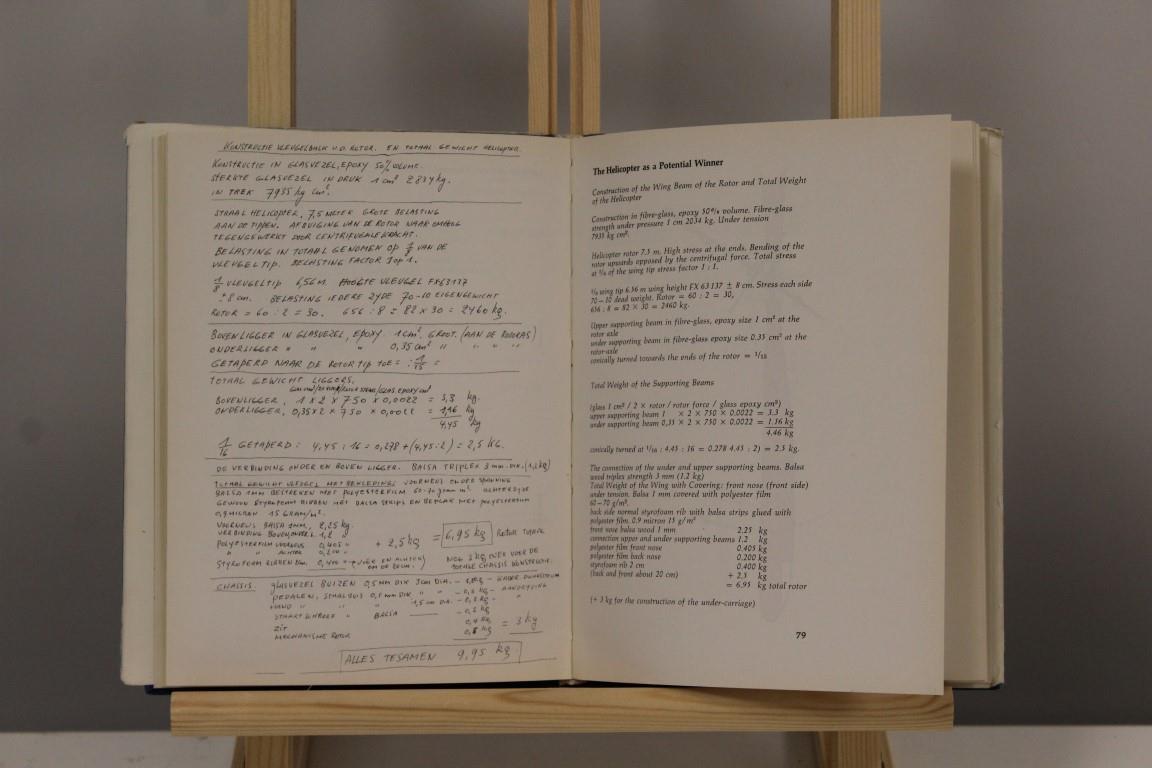 KONSTRUCTIE VLEUGELBALK V.D. ROTOR. EN TOTAAL GEWICHT HELICOPTER.
KONSTRUCTIE IN GLASVEZEL, EPOXY 50% VOLUME.
STERKTE GLASVEZEL IN DRUK 1 cm² 2834 kg.
IN TREK 7935 kg cm².
STRAAL HELICOPTER, 7,5 METER GROTE BELASTING
AAN DE TIPPEN. AFBUIGING VAN DE ROTOR NAAR OMHOOG
TEGENGEWERKT DOOR CENTRIFUGALE KRACHT.
BELASTING IN TOTAAL GENOMEN OP VAN DE
VLEUGELTIP. BELASTING FACTOR 1 op 1.
1/8 VLEUGELTIP 6,56 M. HOOGTE VLEUGEL FX63137
± 8 cm. BELASTING IEDERE ZYDE 70-10 EIGENGEWICHT
ROTOR = 60 : 2 = 30. 656 : 8 = 82 x 30 = 2460 kg.
BOVENLIGGER IN GLASVEZEL, EPOXY. 1 cm². GROOT. (AAN DE ROTORAS)
ONDERLIGGER " " " 0,35 cm² " " " "
GETAPERD NAAR DE ROTOR TIP TOE = : 1/15 =
TOTAAL GEWICHT LIGGERS.
BOVENLIGGER, 1 x 2 x 750 x 0,0022 = 3,3 kg.
ONDERLIGGER, 0,35 x 2 x 750 x 0,0022 = 1,16 kg
4,45 kg
1/16 GETAPERD : 4,45 : 16 = 0,278 + (4,45 : 2) = 2,5 KG.
DE VERBINDING ONDER EN BOVEN LIGGER. BALSA TRIPLEX 3 mm. DIK. (1,2 kg)
TOTAAL GEWICHT VLEUGEL MET BEKLEDING: VOORNEUS ONDER SPANNING
BALSA 1 MM BESTREKEN MET POLYESTERFILM 60-70 gram m². ACHTERZYDE
GEWOON STYROFOAM RIBBEN MET BALSA STRIPS EN BEPLAK MET POLYESTERFILM
0,9 MICRON 15 GRAM/M².
VOORNEUS BALSA 1 MM, 2,25 kg.
VERBINDING BOVEN, ONDER L. 1,2 "
POLYESTERFILM VOORNEUS 0,405 " + 2,5 kg = 6,95 kg ROTOR TOTAAL
" " ACHTER 0,200 "
STYROFOAM RIBBEN 2cm. 0,400 NOG 3 kg OVER VOOR DE
TOTALE CHASSIS KONSTRUCTIE.
CHASSIS. GLASVEZEL BUIZEN 0,5 MM DIK 3 cm DIA.
PEDALEN, STAALBUIS 0,5 mm DIK " "
HAND " " " 1,5 cm DIA.
BALSA
ZIT
MECHANISME ROTOR = 3 kg
ALLES TESAMEN 9,95 kg
The Helicopter as a Potential Winner
Construction of the Wing Beam of the Rotor and Total Weight
of the Helicopter
Construction in fibre-glass, epoxy 50% volume. Fibre-glass
strength under pressure 1 cm 2034 kg. Under tension
7935 kg cm².
Helicopter rotor 7.5 m. High stress at the ends. Bending of the
rotor upwards opposed by the centrifugal force. Total stress
at ⅞ of the wing tip stress factor 1 : 1.
⅞ wing tip 6.56 m wing height FX 63 137 ± 8 cm. Stress each side
70 – 10 dead weight. Rotor = 60 : 2 = 30,
656 : 8 = 82 × 30 = 2460 kg.
Upper supporting beam in fibre-glass, epoxy size 1 cm² at the
rotor-axle
under supporting beam in fibre-glass epoxy size 0.35 cm² at the
rotor-axle
conically turned towards the ends of the rotor = 1/15
Total Weight of the Supporting Beams
(glass 1 cm² / 2 × rotor / rotor force / glass epoxy cm²)
upper supporting beam 1 × 2 × 750 × 0.0022 = 3.3 kg
under supporting beam 0,35 × 2 × 750 × 0.0022 = 1.16 kg
4.46 kg
conically turned at 1/16 : 4.45 : 16 = 0.278 4.45 : 2) = 2.5 kg.
The connection of the under and upper supporting beams. Balsa
wood triplex strength 3 mm (1.2 kg)
Total Weight of the Wing with Covering: front nose (front side)
under tension. Balsa 1 mm covered with polyester film
60–70 g/m².
back side normal styrofoam rib with balsa strips glued with
polyester film. 0.9 micron 15 g/m²
front nose balsa wood 1 mm 2.25 kg
connection upper and under supporting beams 1.2 kg
polyester film front nose 0.405 kg
polyester film back nose 0.200 kg
styrofoam rib 2 cm 0.400 kg
(back and front about 20 cm) + 2,5 kg
= 6.95 kg total rotor
(+ 3 kg for the construction of the under-carriage)
79